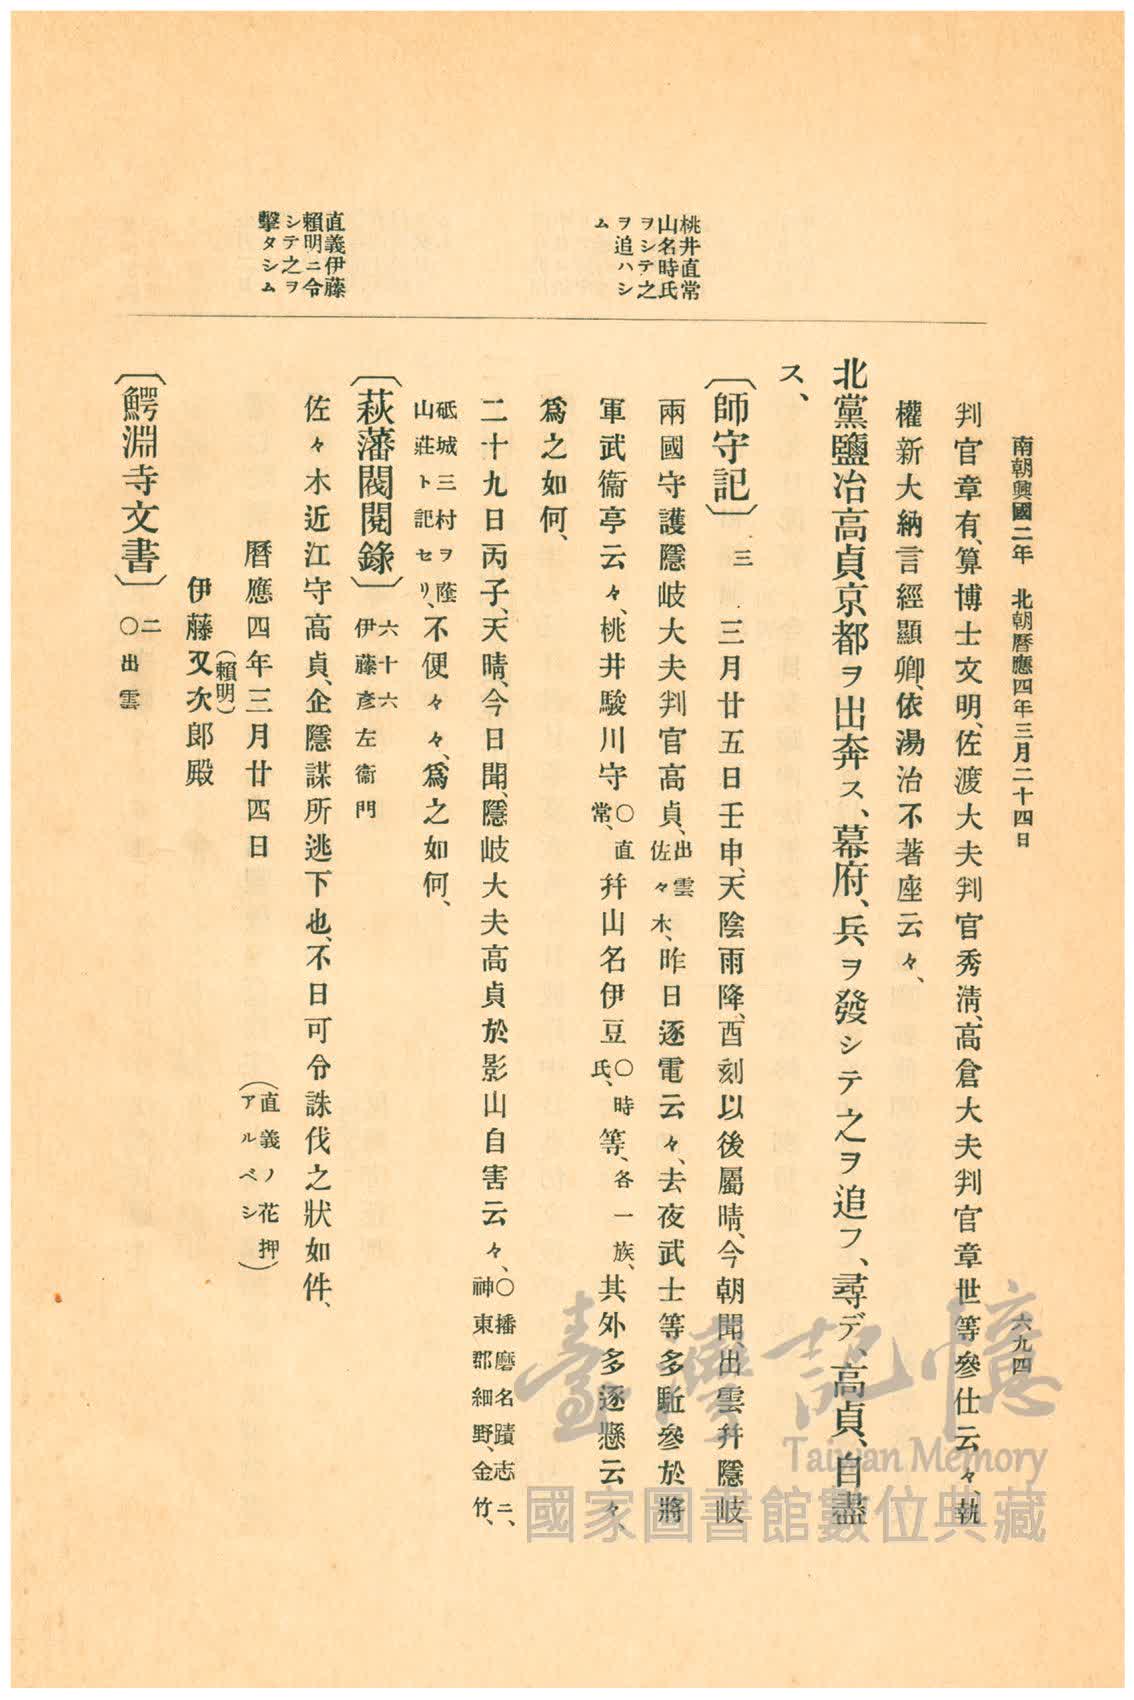 南朝興國二年　北朝曆應四年三月二十四日
六九四
判官章有、算博士文明、佐渡大夫判官秀淸、高倉大夫判官章世等參仕云々、執
權新大納言經顯卿、依湯治不著座云々、
北黨鹽冶高貞京都ヲ出奔ス、幕府、兵ヲ發シテ之ヲ追フ、尋デ、高貞、自盡
ス、
桃井直常
山名時氏
ヲシテ之
ヲ追ハシ
ム
〔師守記〕三　三月廿五日壬申、天陰雨降、酉刻以後屬晴、今朝聞、出雲幷隱岐
兩國守護隱岐大夫判官高貞、出雲佐々木、昨日逐電云々、去夜武士等多馳參於將
軍武衞亭云々、桃井駿川守〇直常、幷山名伊豆〇時氏、等、各一族、其外多逐懸云々、
爲之如何、
二十九日丙子、天晴、今日聞、隱岐大夫高貞於影山自害云々、〇播磨名蹟志ニ、神東郡細野、金竹、
砥城三村ヲ蔭山莊ト記セリ、不便々々、爲之如何、
直義伊藤
賴明ニ令
シテ之ヲ
擊タシム
〔萩藩閥閱錄〕六十六伊藤彥左衞門
佐々木近江守高貞、企隱謀所逃下也、不日可令誅伐之狀如件、
曆應四年三月廿四日　（直義ノ花押アルベシ）
伊藤又次郎殿
（賴明）
〔鰐淵寺文書〕二〇出雲
臺灣記憶
Taiwan Memory
國家圖書館數位典藏